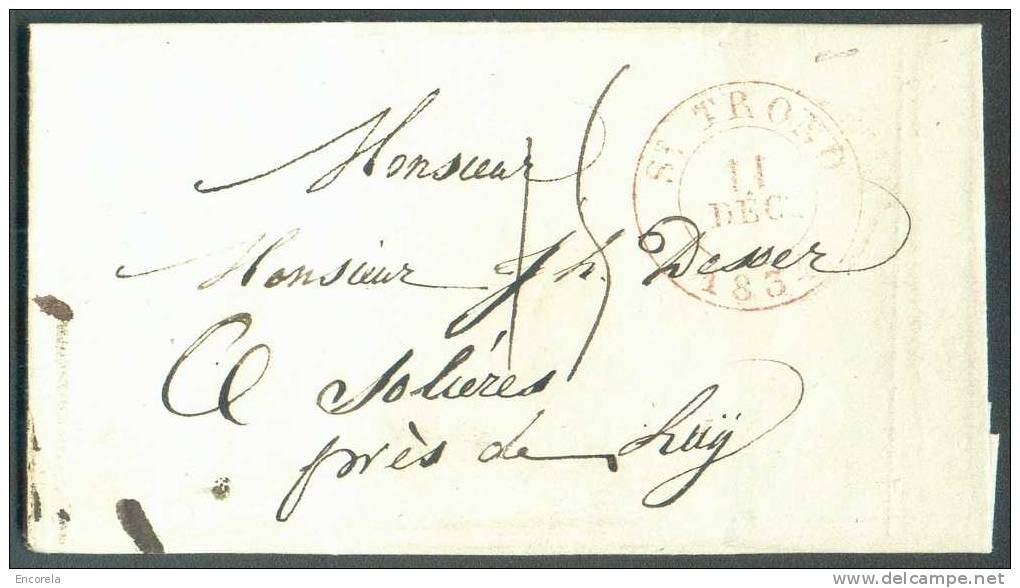 Monsieur
Monsieur Jh. Desser
A Solières
près de Huÿ
15
ST TROND
11
DÉC.
183
Encorela
www.delcampe.net